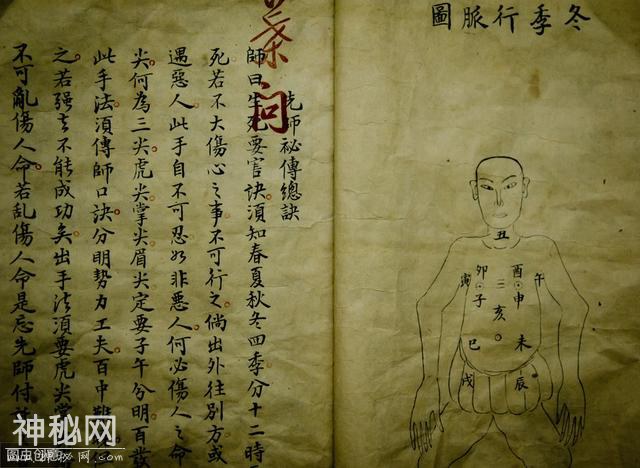 冬季行脈圖
丑
午 酉 卯 寅
申 子
亥
未 巳
辰 戌
葉問
先師祕傳總訣
師曰生死要害訣須知春夏秋冬四季分十二時
死若不大傷心之事不可行之倘出外往別方或
遇惡人此手自不可忍如非惡人何必傷人之命
尖何為三尖虎尖掌尖眉尖定要子午分明百發
此手法須傳師口訣分明勢力工夫百中
之若强去不能成功矣出手法須要虎尖掌
不可亂傷人命若乱傷人命是忘先師付
神秘网
图虫创意